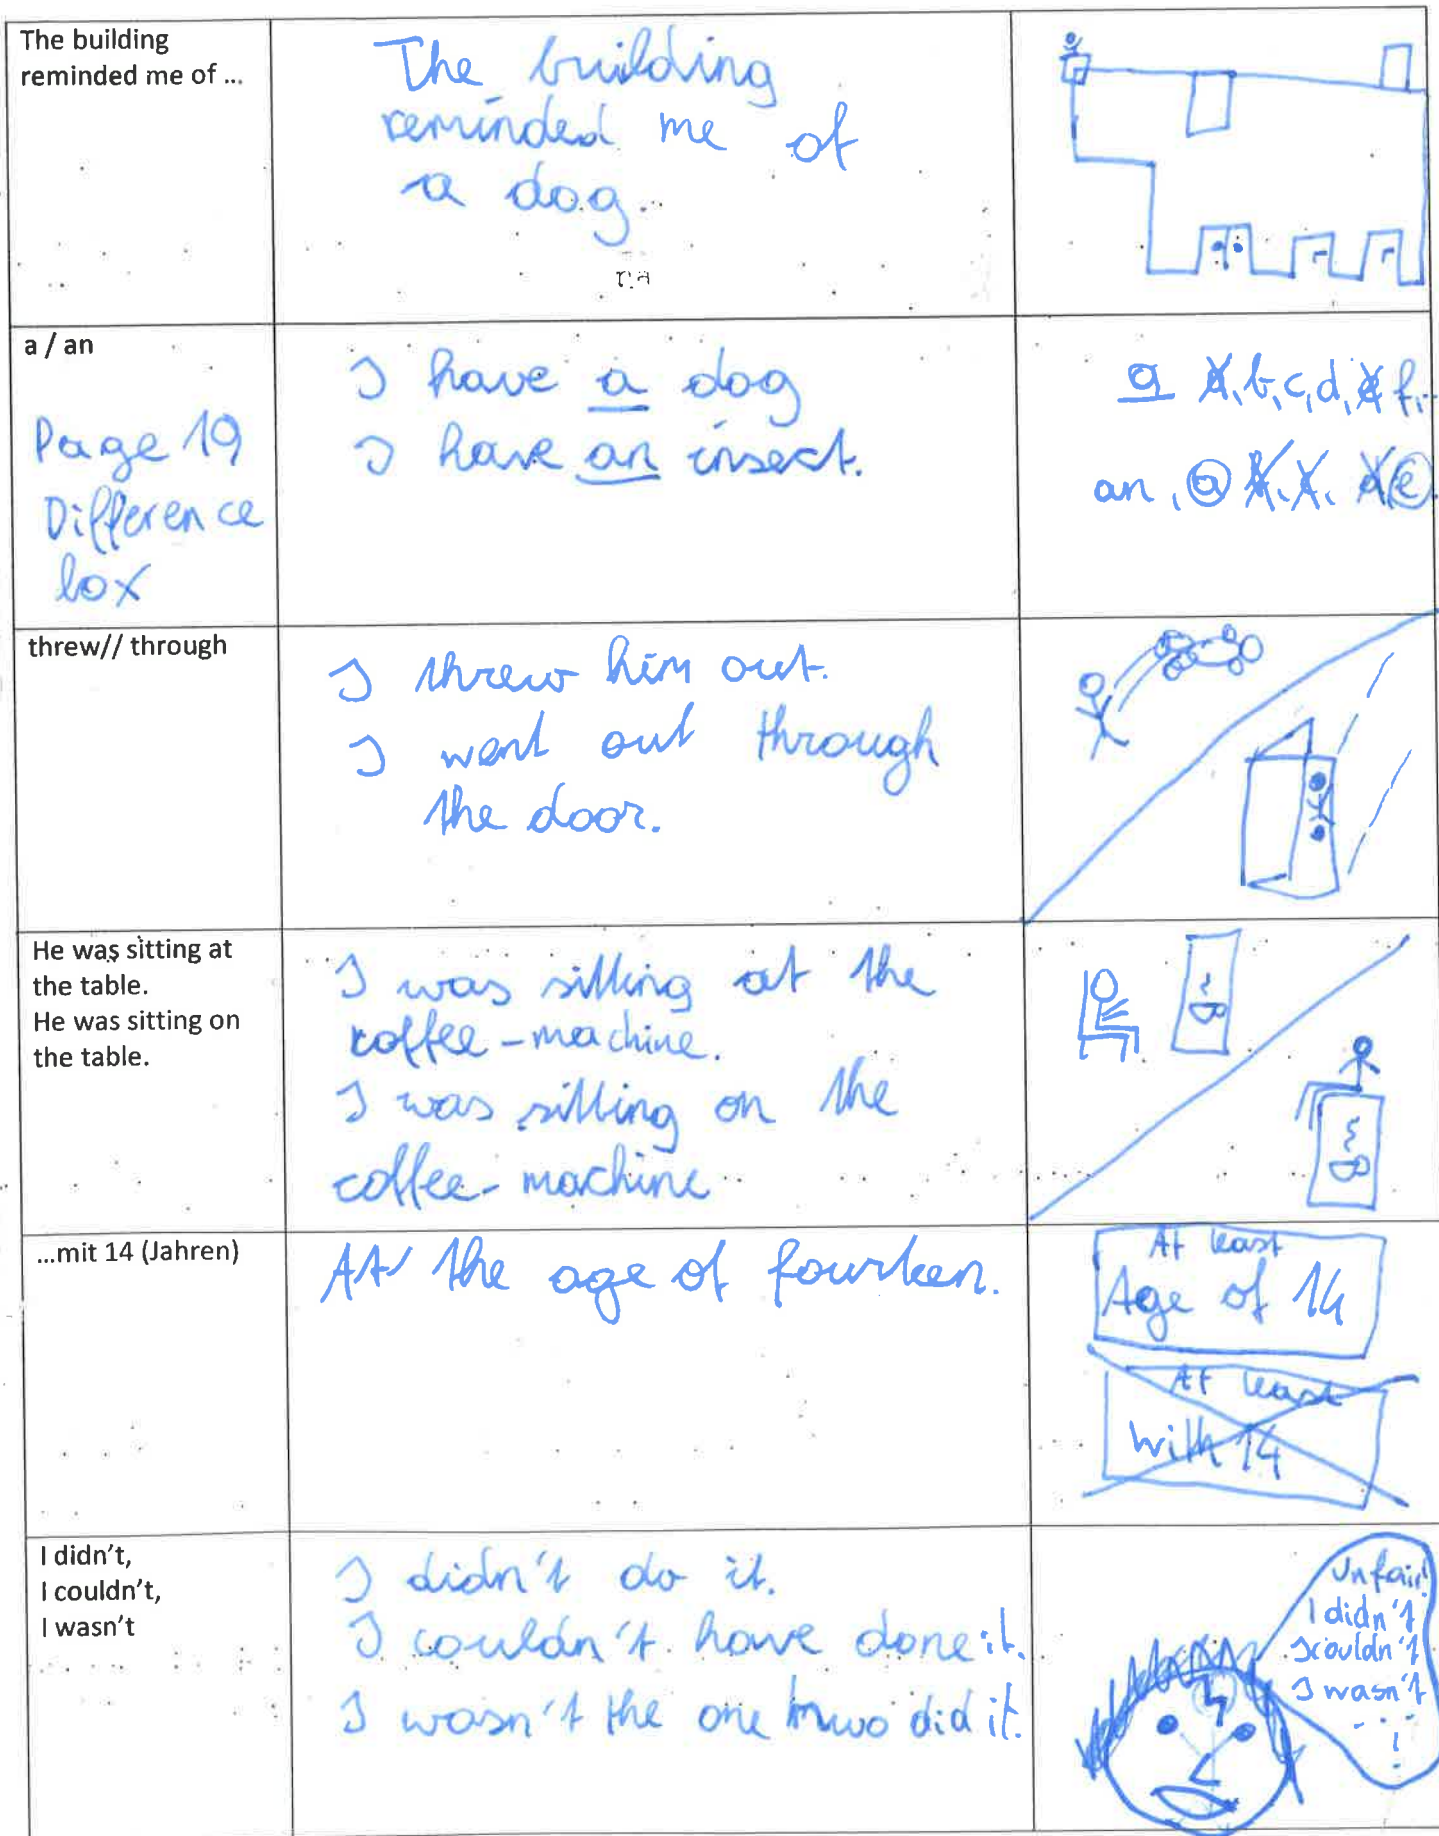 The building
reminded me of ...
The building
reminded me of
a dog.
a / an
Page 19
Difference
box
I have a dog
I have an insect.
a a, b, c, d, e f,
an, a e
threw// through
I threw him out.
I went out through
the door.
He was sitting at
the table.
He was sitting on
the table.
I was sitting at the
coffee-machine.
I was sitting on the
coffee-machine
...mit 14 (Jahren)
At the age of fourteen.
At least
Age of 14
At least
With 14
I didn't,
I couldn't,
I wasn't
I didn't do it.
I couldn't have done it.
I wasn't the one who did it.
Unfair!
I didn't
I couldn't
I wasn't
...!